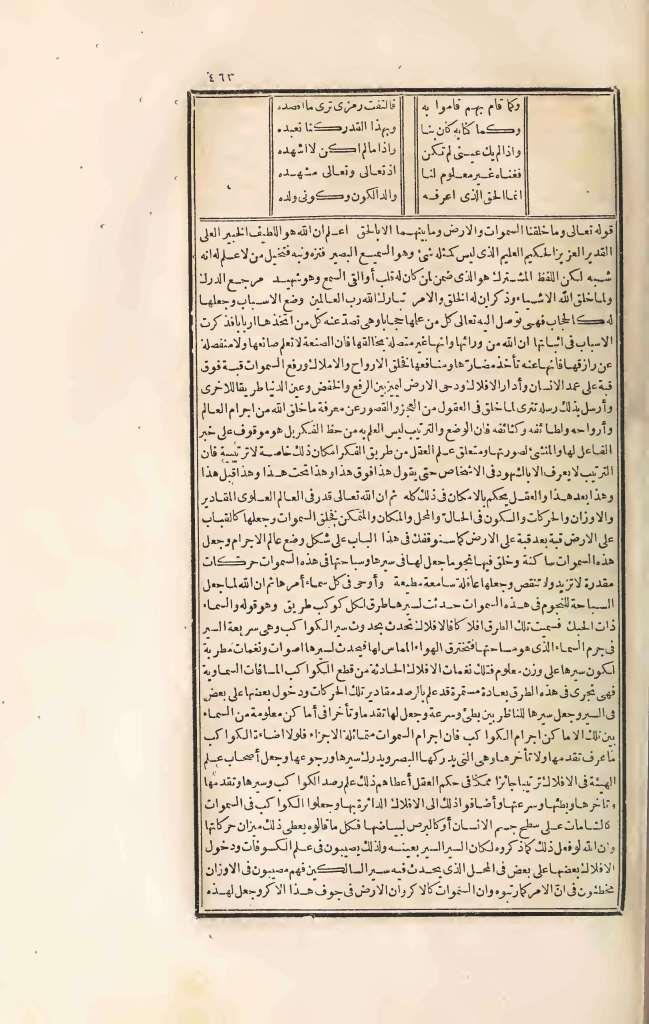 ٤٦٣
وكما قام بهم قاموا به فالتفت رمزى ترى ما أقصده
وكما كنا به كان بنا وبهذا القدر كنا نعبده
واذا لم يك عينى لم تكن واذا ما لم اكن لا اشهده
فغناه غير معلوم لنا اذ تعالى وتعالى مشهده
انما الحق الذى اعرفه والد الكون وكونى ولده
قوله تعالى وما خلقنا السموات والارض وما بينهما الا بالحق اعلم ان الله هو اللطيف الخبير العلى
القدير العزيز الحكيم العليم الذى ليس كمثله شئ وهو السميع البصير فنزه ونبه فتخيل من لا علم له انه
شبه لكن اللفظ المشترك هو الذى ضمن لمن كان له قلب أو ألقى السمع وهو شهيد مرجع الدرك
ولما خلق الله الاشياء وذكر ان له الخلق والامر تبارك الله رب العالمين وضع الاسباب وجعلها
له كالحجاب فهى توصل اليه تعالى كل من علمها حجابا وهى تصد عنه كل من اتخذها اربابا فذكرت
الاسباب فى انبائها ان الله من ورائها وانها غير متصلة بخالقها فان الصنعة لا تعلم صانعها ولا منفصلة
عن رازقها فانها عنه تأخذ مضارها ومنافعها فخلق الارواح والاملاك ورفع السموات قبة فوق
قبة على عمد الانسان وأدار الافلاك ودحى الارض ليميز بين الرفع والخفض وعين الدنيا طريقا للاخرى
وأرسل بذلك رسله تترى لما خلق فى العقول من العجز والقصور عن معرفة ما خلق الله من اجرام العالم
وأرواحه ولطائفه وكثائفه فان الوضع والترتيب ليس العلم به من حظ الفكر بل هو موقوف على خبر
الفاعل لها والمنشئ لصورتها ومتعلق علم العقل من طريق الفكر امكان ذلك خاصة لا ترتيبه فان
الترتيب لا يعرف الا بالشهود فى الاشخاص حتى يقول هذا فوق هذا وهذا تحت هذا وهذا قبل هذا
وهذا بعد هذا والعقل يحكم بالامكان فى ذلك كله ثم ان الله تعالى قدر فى العالم العلوى المقادير
والاوزان والحركات والسكون فى الحال والمحل والمكان والمتمكن فخلق السموات وجعلها كالقباب
على الارض قبة بعد قبة على الارض كما سنوقفك فى هذا الباب على شكل وضع عالم الاجرام وجعل
هذه السموات ساكنة وخلق فيها نجوما جعل لها فى سيرها وسباحتها فى هذه السموات حركات
مقدرة لا تزيد ولا تنقص وجعلها عاقلة سامعة مطيعة وأوحى فى كل سماء أمرها ثم ان الله لما جعل
السباحة للنجوم فى هذه السموات حدثت لسيرها طرق لكل كوكب طريق وهو قوله والسماء
ذات الحبك فسميت تلك الطرق افلاكا فالافلاك تحدث بحدوث سير الكواكب وهى سريعة السير
فى جرم السماء الذى هو مساحتها فتخترق الهواء المماس لها فيحدث لسيرها اصوات ونغمات مطربة
لكون سيرها على وزن معلوم فتلك نغمات الافلاك الحادثة من قطع الكواكب المسافات السماوية
فهى تجرى فى هذه الطرق بعادة مستمرة قد علم بالرصد مقادير تلك الحركات ودخول بعضها على بعض
فى السير وجعل سيرها للناظر بين بطئ وسرعة وجعل لها تقدما وتأخرا فى أماكن معلومة من السماء
بين تلك الاماكن اجرام الكواكب فان اجرام السموات متماثلة الاجزاء فلولا اضاءة الكواكب
ما عرف تقدمها ولا تأخرها وهى التى يدركها البصر ويدرك سيرها ورجوعها وجعل أصحاب علم
الهيئة فى الافلاك ترتيبا جائزا ممكنا فى حكم العقل أعطاهم ذلك علم رصد الكواكب وسيرها وتقدمها
وتأخرها وبطئها وسرعتها وأضافوا ذلك الى الافلاك الدائرة بها وجعلوا الكواكب فى السموات
كالشامات على سطح جسم الانسان أو كالبرص لبياضها فكل ما قالوه يعطى ذلك ميزان حركاتها
وان الله لو فعل ذلك كما ذكروه لكان السير السير بعينه ولذلك يصيبون فى علم الكسوفات ودخول
الافلاك بعضها على بعض فى المحل الذى يحدث فيه سير السالكين فهم مصيبون فى الاوزان
مخطئون فى انّ الامر كما رتبوه وان السموات كالاكر وان الارض فى جوف هذا الاكر وجعل لهذه